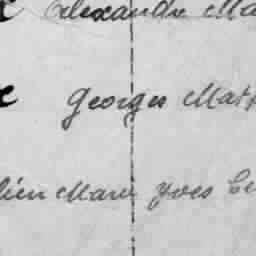 Alexandre Ma
Georges Mat
lien Marie Yves Le